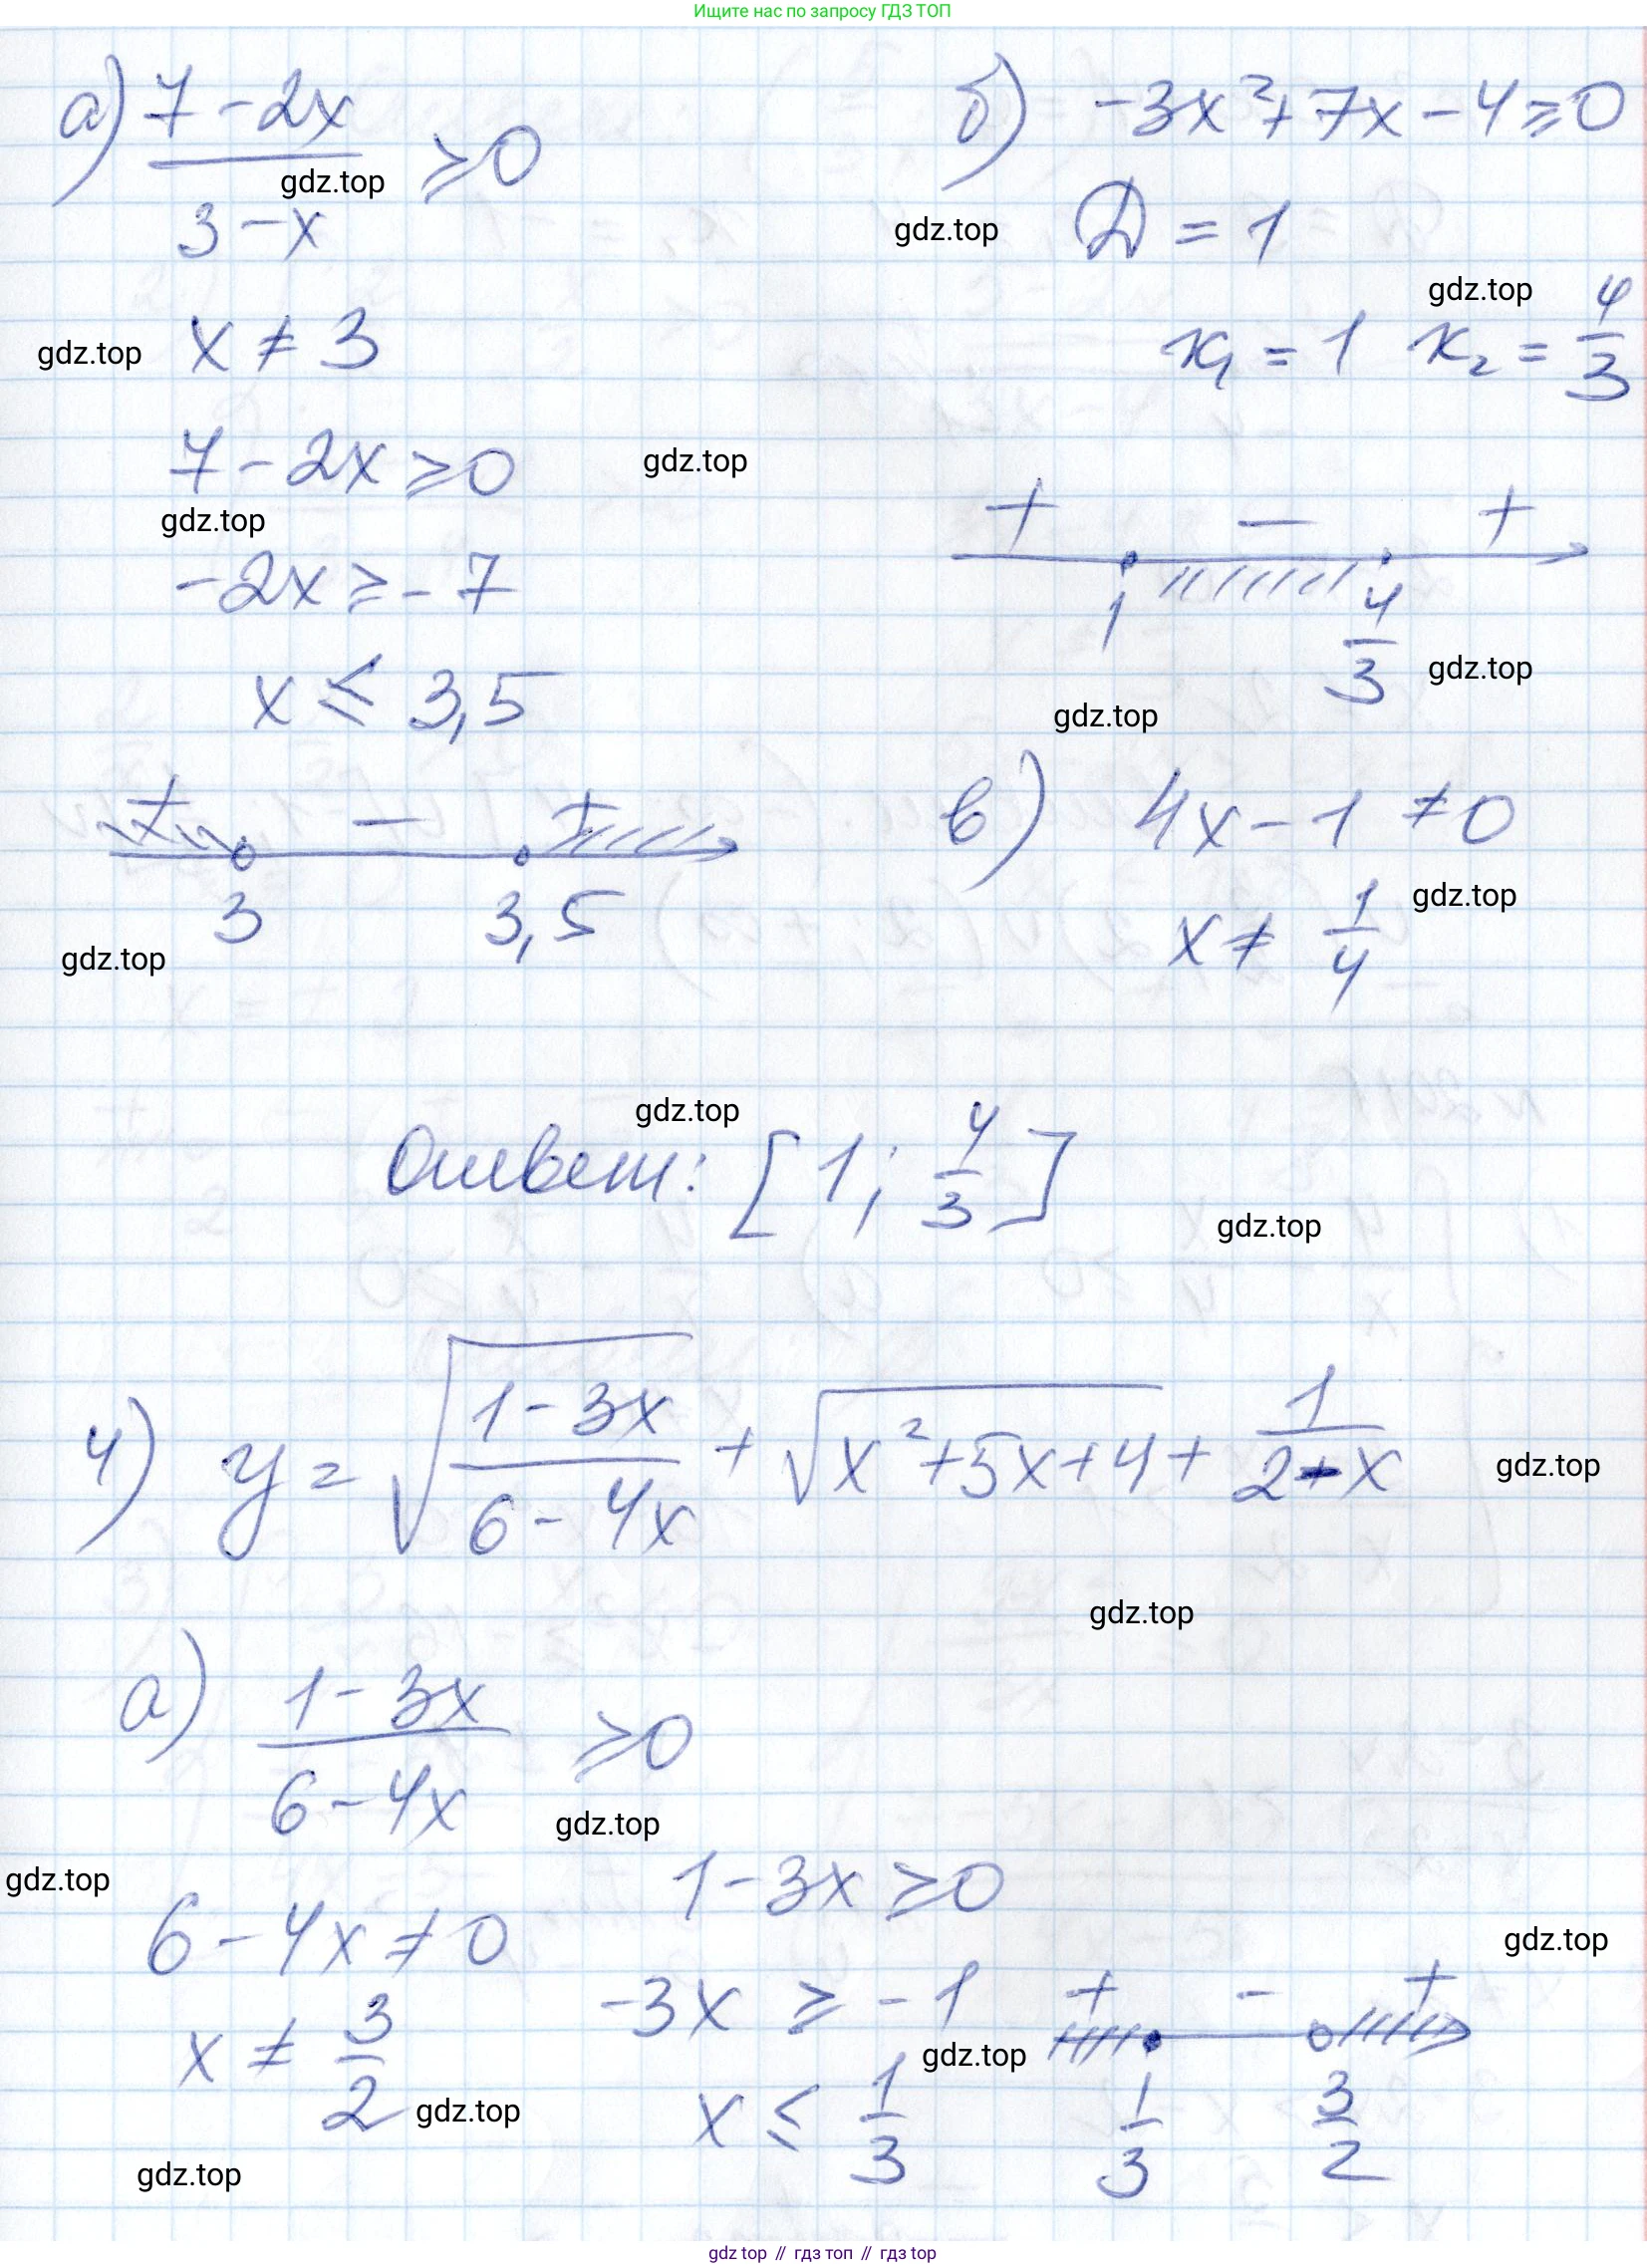 Ищите нас по запросу ГДЗ ТОП
а) (7 - 2x)/(3 - x) ≥ 0
gdz.top
x ≠ 3
gdz.top
7 - 2x ≥ 0
gdz.top
gdz.top
-2x ≥ -7
x ≤ 3,5
+ - +
3 3,5
gdz.top
б) -3x² + 7x - 4 ≥ 0
gdz.top
D = 1
gdz.top
x₁ = 1 x₂ = 4/3
+ - +
1 4/3
gdz.top
gdz.top
в) 4x - 1 ≠ 0
gdz.top
x ≠ 1/4
gdz.top
Ответ: [1; 4/3]
gdz.top
4) y = √((1 - 3x)/(6 - 4x)) + √(x² + 5x + 4) + 1/(2 - x)
gdz.top
gdz.top
а) (1 - 3x)/(6 - 4x) ≥ 0
gdz.top
gdz.top
6 - 4x ≠ 0
x ≠ 3/2
gdz.top
gdz.top
1 - 3x ≥ 0
-3x ≥ -1
gdz.top
x ≤ 1/3
gdz.top
+ - +
1/3 3/2
gdz top // гдз топ // гдз top